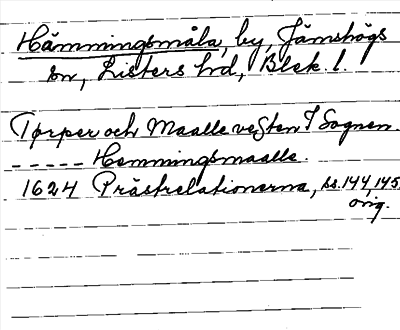 Hämmingsmåla, by, Jämshögs
sn, Listers hd, Blek. l.
Torper och Maalle vesten I Sognen.
- - - - - Hemmingsmaalle.
1624 Prästrelationerna, ss. 144, 145
orig.